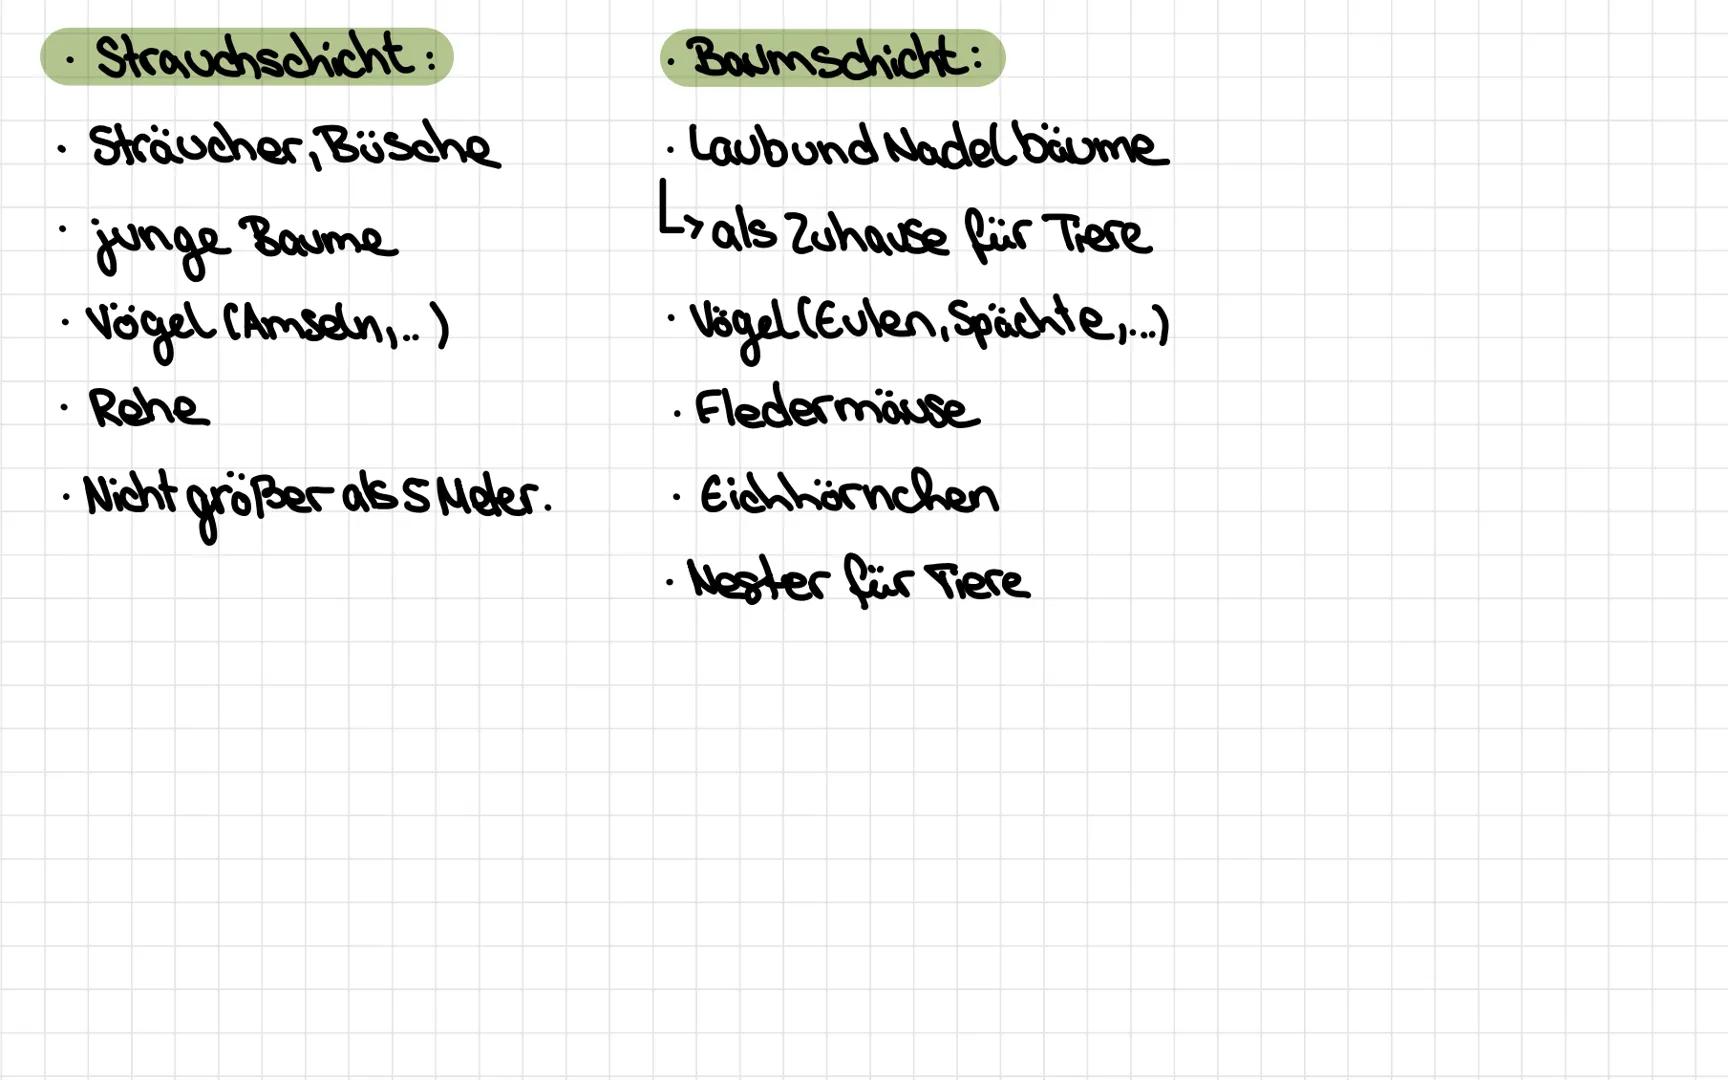 · Strauchschicht:
· Sträucher, Büsche
· junge Baume
· Vögel (Amseln,..)
· Rehe
· Nicht größer als 5 Meter.
· Baumschicht:
· Laub und Nadelbäume
↳ als Zuhause für Tiere
· Vögel (Eulen, Spächte,...)
· Fledermäuse
· Eichhörnchen
· Nester für Tiere